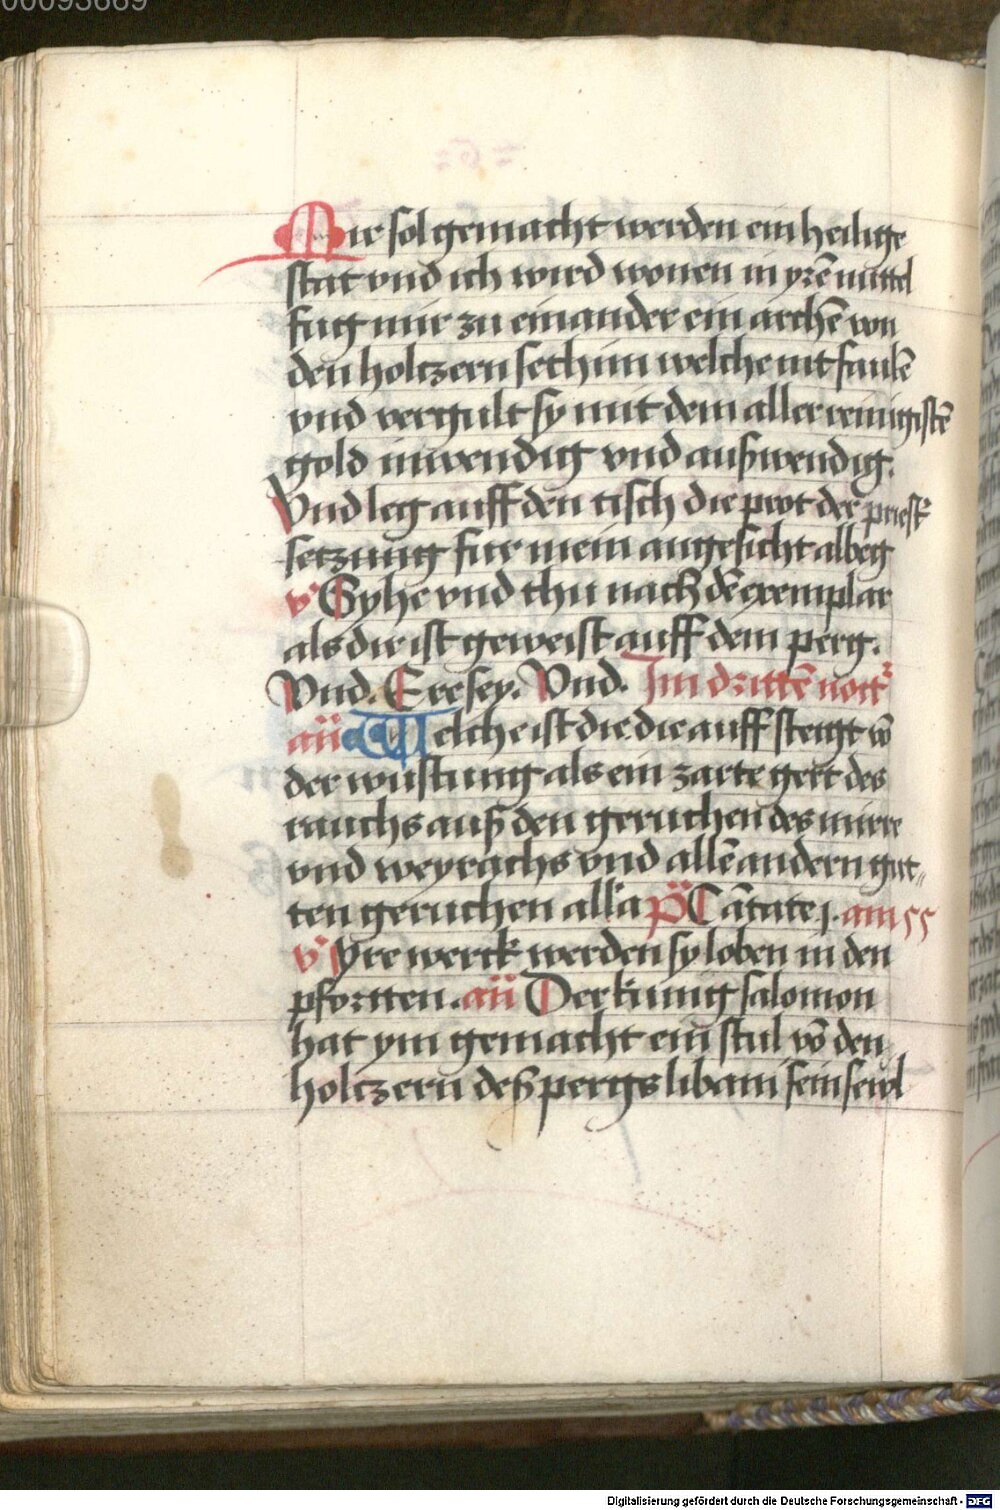 00093669
Mir sol gemacht werden ein heilige
stat vnd ich wird wonen in yrē mittel
fug mir zu einander ein archē von
den holtzern sethim welche nit faulē
vnd vergult sy mit dem aller reinigistē
gold inwendig vnd außwendig.
Vnd leg auff den tisch die prot der priest̉
setzung fur mein angesicht albeg
v̉ Syhe vnd thu nach dē exemplar
als dir ist geweist auff dem perg.
Vnd. Ere sey. Vnd. Im drittē nott̉
an̄ Welche ist die die auff steigt vō
der wustung als ein zarte gert des
rauchs auß den geruchen des mirre
vnd weyrachs vnd allē andern gut„
ten geruchen all'a p̈s Cātate j. am 55
v̉ Yre werck werden sy loben in den
pfortten. an̄ Der kunig salomon
hat ym gemacht ein stul vō den
holtzern deß pergs libani sein sewl
Digitalisierung gefördert durch die Deutsche Forschungsgemeinschaft - DFG